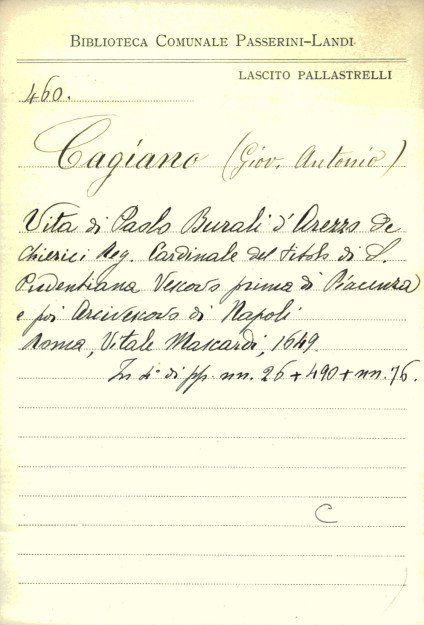 BIBLIOTECA COMUNALE PASSERINI-LANDI
LASCITO PALLASTRELLI
460.
Cagiano (Giov. Antonio)
Vita di Paolo Burali d'Arezzo de
Chierici Reg. Cardinale del titolo di S.
Pudentiana Vescovo prima di Piacenza
e poi Arcivescovo di Napoli
Roma, Vitale Mascardi, 1649.
In 4° di pp. nn. 26+490+nn. 76.
C